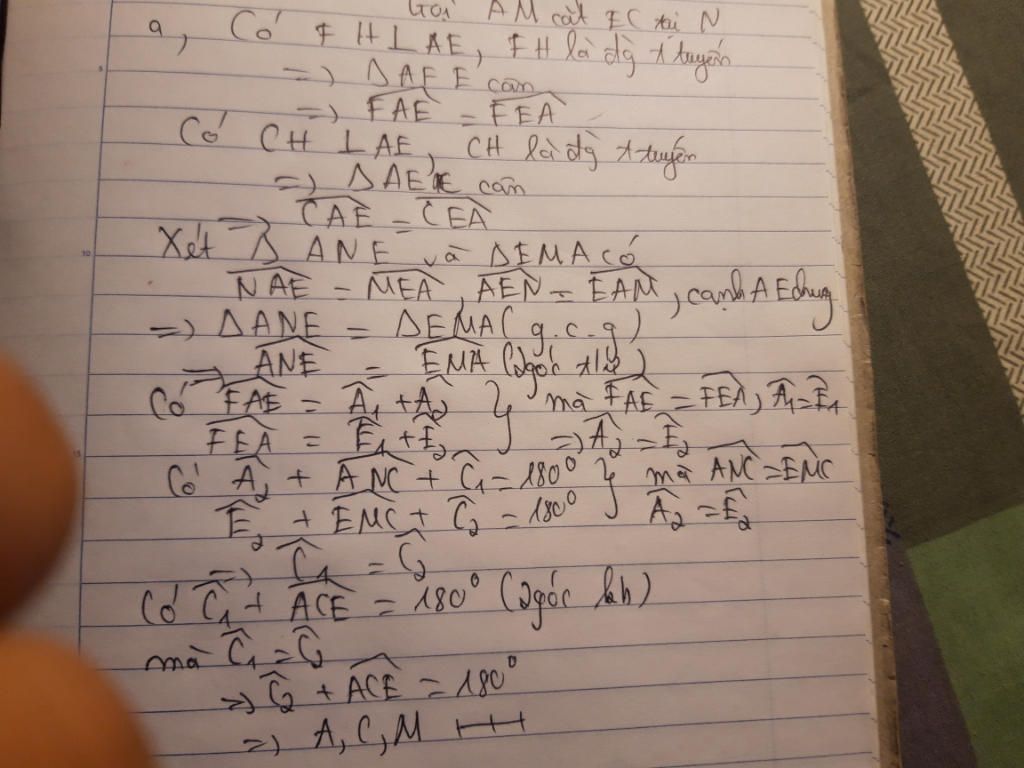 Gọi AM cắt EC tại N
a, Có FH ⊥ AE, FH là đg ttuyến
=> ΔAFE cân
=> FAE = FEA
Có CH ⊥ AE, CH là đg ttuyến
=> ΔAEC cân
=> CAE = CEA
Xét Δ ANE và ΔEMA có
NAE = MEA, AEN = EAM, cạnh AE chung
=> ΔANE = ΔEMA (g.c.g)
=> ANE = EMA (2góc tứ)
Có FAE = A1 + A2 } mà FAE = FEA, A1 = E1
FEA = E1 + E2 => A2 = E2
Có A2 + ANC + C1 = 180° } mà ANC = EMC
E2 + EMC + C2 = 180° A2 = E2
=> C1 = C2
Có C1 + ACE = 180° (2góc kb)
mà C1 = C2
=> C2 + ACE = 180°
=> A, C, M